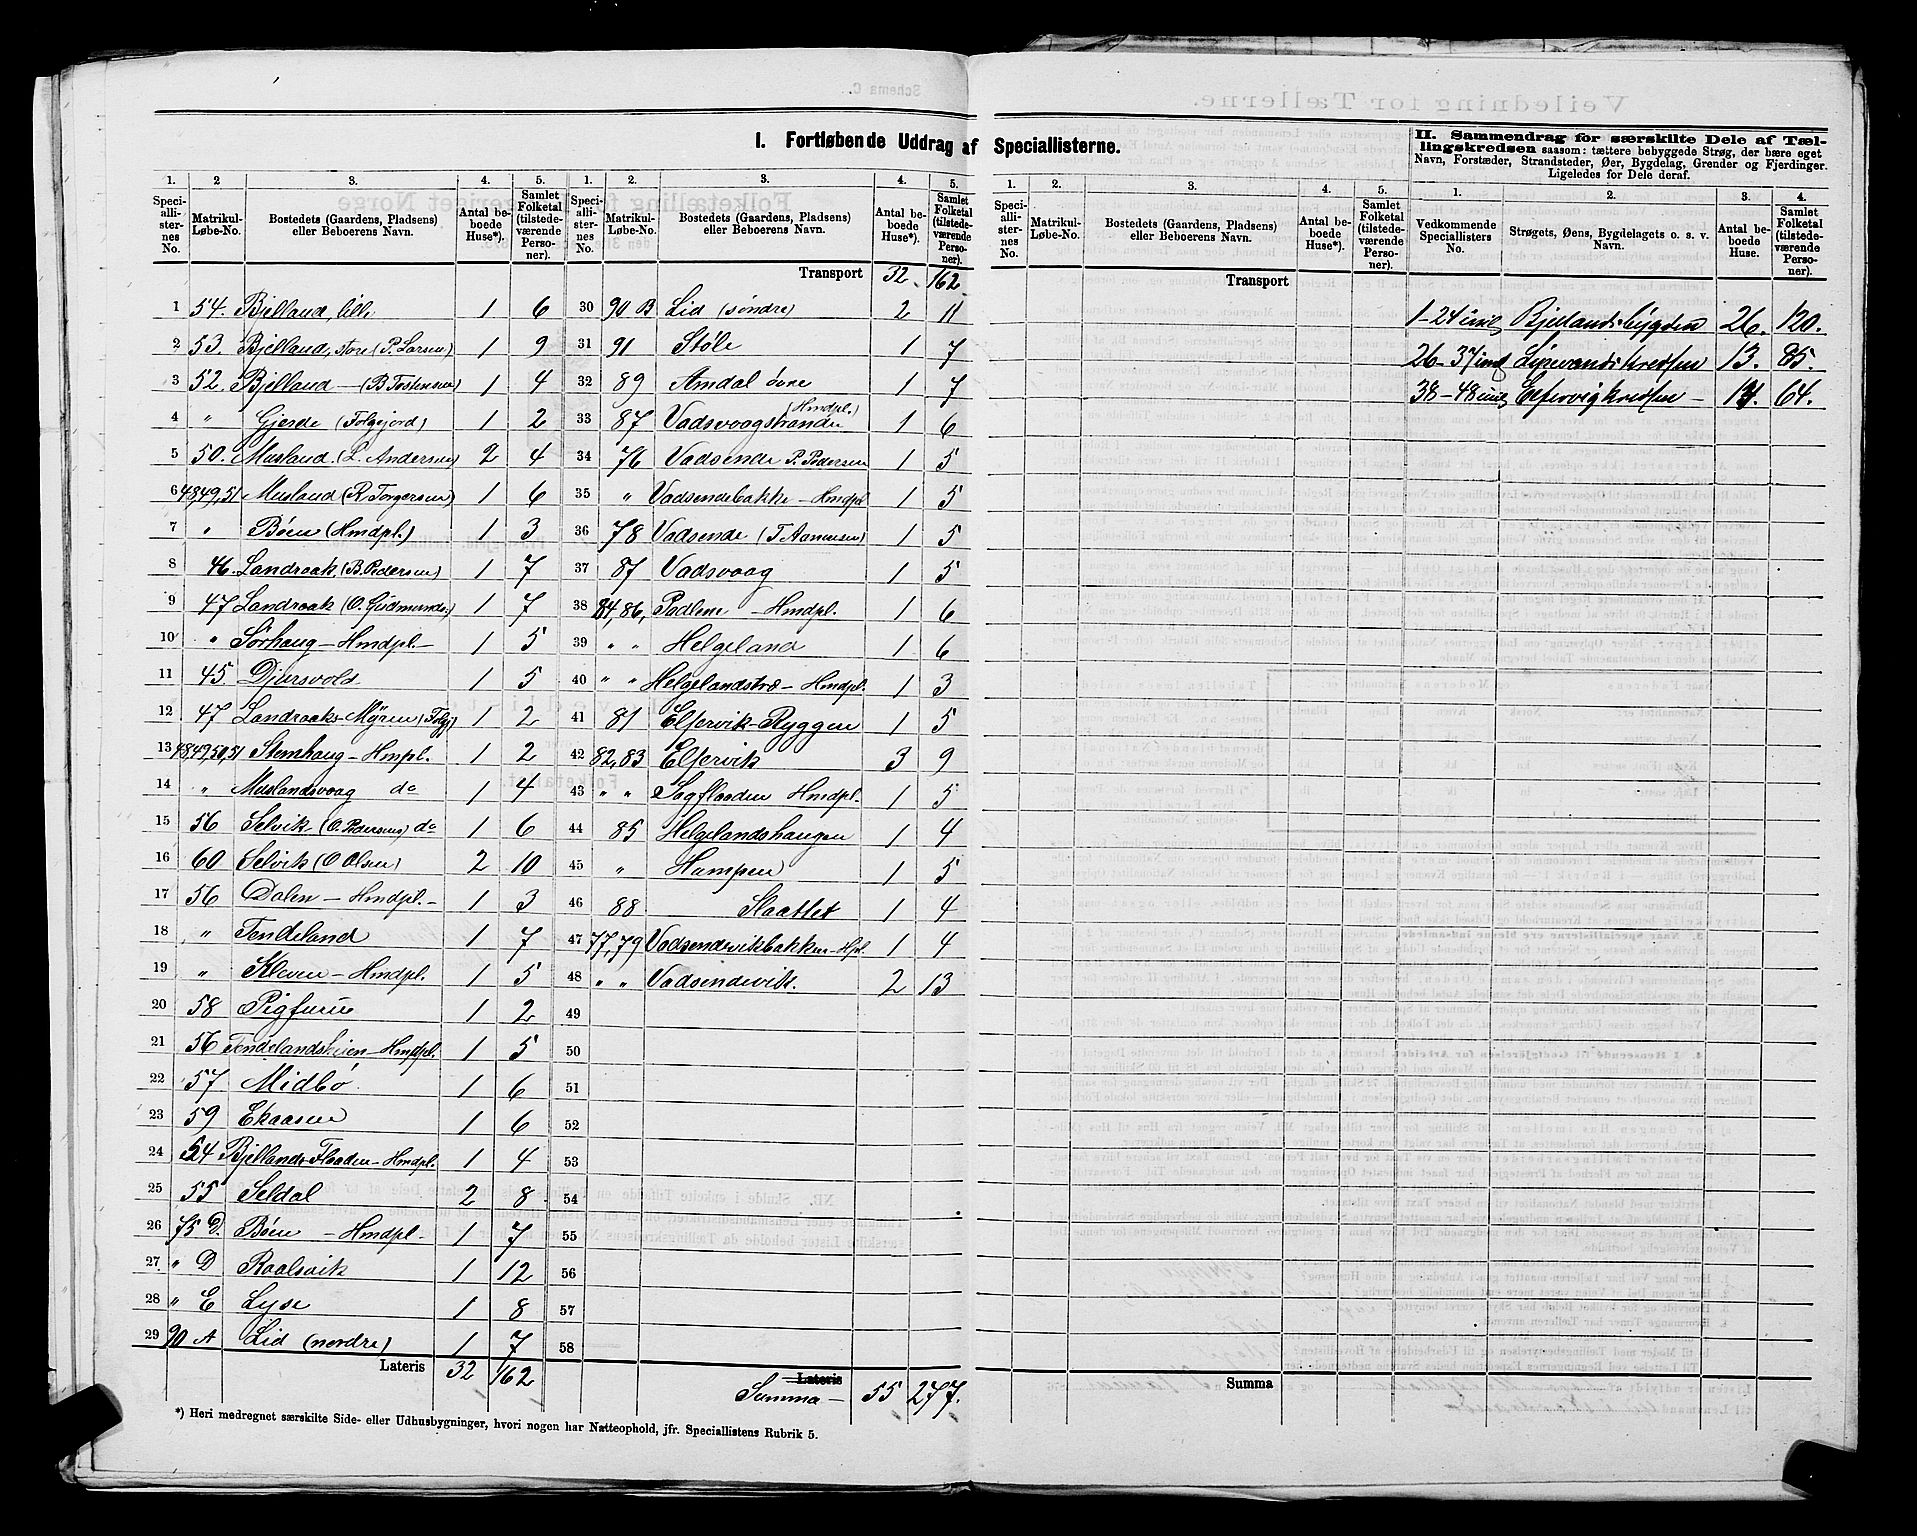 I. Fortløbende Uddrag af Speciallisterne.
1. Speciallisternes No. | 2 Matrikul-Løbe-No. | 3. Bostedets (Gaardens, Pladsens) eller Beboerens Navn. | 4. Antal beboede Huse*). | 5. Samlet Folketal (tilstedeværende Personer).
1 54. Bjelland, lille 1 6
2 53. Bjelland, store (P. Larsen) 1 9
3 52. Bjelland — (B Tostensen) 1 4
4 " Gjerde (Folgejord) 1 2
5 50. Musland. (L. Andersen) 2 4
6 48,49,51 Musland (R. Torgersen) 1 6
7 " Bøen (Hmdpl.) 1 3
8 46. Landraak, (B. Pedersen) 1 7
9 47 Landraak (O. Gudmunds:) 1 7
10 " Sørhaug — Hmdpl. — 1 5
11 45. Djursvold 1 5
12 47 Landraaks-Myren (Folgj) 1 2
13 48,49,50,51 Stemhaug — Hmpl. 1 2
14 " Muslandsvaag do 1 4
15 56 Selvik (O. Pedersens) do 1 6
16 60 Selvik (O Olsen) 2 10
17 56 Dalen — Hmdpl. — 1 3
18 " Tendeland 1 7
19 " Kleven — Hmdpl. 1 5
20 58 Pigfurue 1 2
21 56 Tendelandsheien — Hmdpl. 1 5
22 57 Midbø. 1 6
23 59 Ekaasen 1 6
24 54 Bjellands Flaaden — Hmdpl. 1 4
25 55 Seldal 2 8
26 75 D. Bøen — Hmdpl — 1 7
27 " D Raalsvik 1 12
28 " E Lyse 1 8
29 90 A Lid (nordre) 1 7
Lateris 32 162
1. Speciallisternes No. | 2. Matrikul-Løbe-No. | 3. Bostedets (Gaardens, Pladsens) eller Beboerens Navn. | 4. Antal beboede Huse*). | 5. Samlet Folketal (tilstedeværende Personer).
Transport 32. 162
30 90 B Lid (søndre) 2 11
31 91 Støle 1 7
32 89 Amdal øvre 1 7
33 87 Vadsvaagstranden (Hmdpl.) 1 6
34 76 Vadsende P. Pedersen 1 5
35 " Vadsendebakke — Hmdpl 1 5
36 78 Vadsende (T Aanensen) 1 5
37 87 Vadsvaag 1 5
38 84,86, Podlene — Hmdpl. 1 6
39 " " Helgeland 1 6
40 " " Helgelandstrø — Hmdpl. 1 3
41 81 Elfervik-Ryggen 1 5
42 82,83 Elfervik 3 9
43 " " Sagflaaden Hmdpl. 1 5
44 85 Helgelandshaugen 1 4
45 " Hampen 1 5
46 88 Slaattet 1 4
47 77,79 Vadsendevikbakken — Hpl. 1 4
48 " " Vadsendevik. 2 13
49
50
51
52
53
54
55
56
57
58
Lateris
Summa — 55 277.
*) Heri medregnet særskilte Side- eller Udhusbygninger, hvori nogen har Natteophold, jfr. Speciallistens Rubrik 5.
1. Speciallisternes No. | 2. Matrikul-Løbe-No. | 3. Bostedets (Gaardens, Pladsens) eller Beboerens Navn. | 4. Antal beboede Huse*). | 5. Samlet Folketal (tilstedeværende Personer).
Transport
Summa
II. Sammendrag for særskilte Dele af Tællingskredsen saasom: tættere bebyggede Strøg, der bære eget Navn, Forstæder, Strandsteder, Øer, Bygdelag, Grender og Fjerdinger. Ligeledes for Dele deraf.
1. Vedkommende Speciallisters No. | 2. Strøgets, Øens, Bygdelagets o. s. v. Navn. | 3. Antal beboede Huse. | 4. Samlet Folketal (tilstedeværende Personer).
1-24 incl Bjellandsbygden 26. 120.
26-37 incl Lysevandskredsen 13. 85.
38-48 incl Elfervigkredsen — 14. 64.